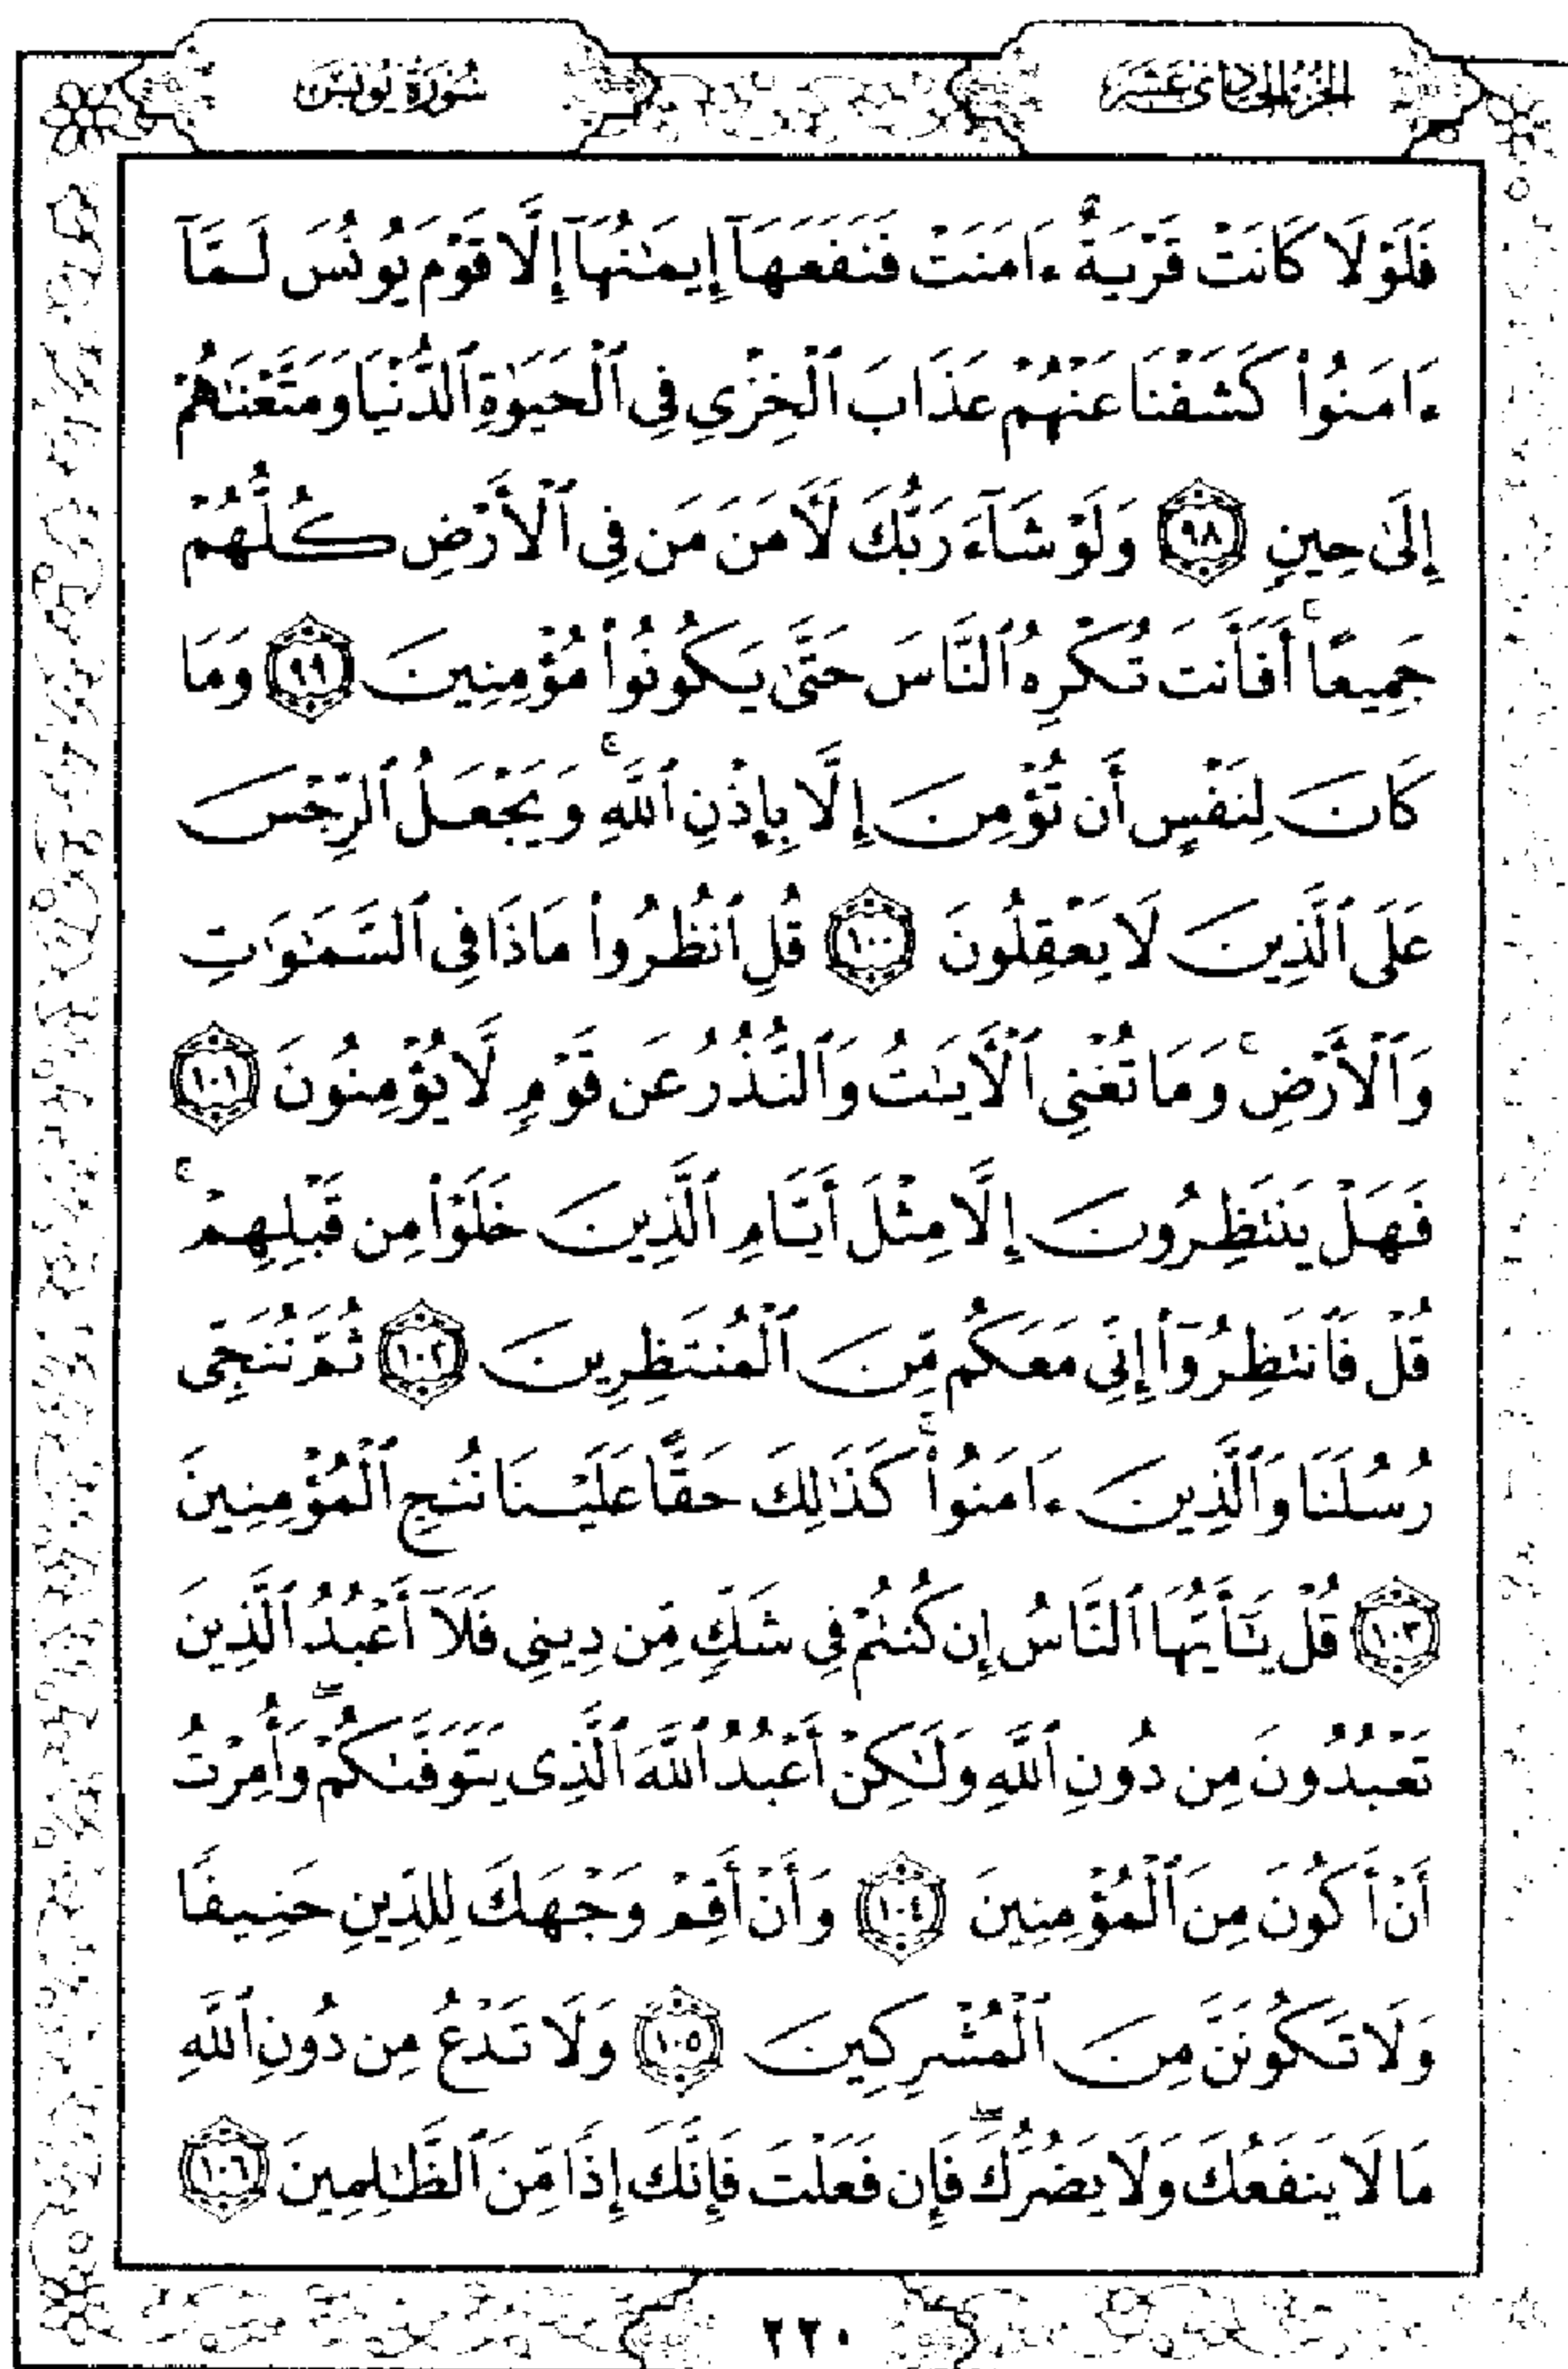 الجزء الحادي عشر
سورة يونس
فَلَوْلَا كَانَتْ قَرْيَةٌ ءَامَنَتْ فَنَفَعَهَآ إِيمَٰنُهَآ إِلَّا قَوْمَ يُونُسَ لَمَّآ
ءَامَنُوا۟ كَشَفْنَا عَنْهُمْ عَذَابَ ٱلْخِزْيِ فِى ٱلْحَيَوٰةِ ٱلدُّنْيَا وَمَتَّعْنَٰهُمْ
إِلَىٰ حِينٍ ٩٨ وَلَوْ شَآءَ رَبُّكَ لَءَامَنَ مَن فِى ٱلْأَرْضِ كُلُّهُمْ
جَمِيعًا ۚ أَفَأَنتَ تُكْرِهُ ٱلنَّاسَ حَتَّىٰ يَكُونُوا۟ مُؤْمِنِينَ ٩٩ وَمَا
كَانَ لِنَفْسٍ أَن تُؤْمِنَ إِلَّا بِإِذْنِ ٱللَّهِ ۚ وَيَجْعَلُ ٱلرِّجْسَ
عَلَى ٱلَّذِينَ لَا يَعْقِلُونَ ١٠٠ قُلِ ٱنظُرُوا۟ مَاذَا فِى ٱلسَّمَٰوَٰتِ
وَٱلْأَرْضِ ۚ وَمَا تُغْنِى ٱلْءَايَٰتُ وَٱلنُّذُرُ عَن قَوْمٍ لَّا يُؤْمِنُونَ ١٠١
فَهَلْ يَنتَظِرُونَ إِلَّا مِثْلَ أَيَّامِ ٱلَّذِينَ خَلَوْا۟ مِن قَبْلِهِمْ ۚ
قُلْ فَٱنتَظِرُوٓا۟ إِنِّى مَعَكُم مِّنَ ٱلْمُنتَظِرِينَ ١٠٢ ثُمَّ نُنَجِّى
رُسُلَنَا وَٱلَّذِينَ ءَامَنُوا۟ ۚ كَذَٰلِكَ حَقًّا عَلَيْنَا نُنجِ ٱلْمُؤْمِنِينَ
١٠٣ قُلْ يَٰٓأَيُّهَا ٱلنَّاسُ إِن كُنتُمْ فِى شَكٍّ مِّن دِينِى فَلَآ أَعْبُدُ ٱلَّذِينَ
تَعْبُدُونَ مِن دُونِ ٱللَّهِ وَلَٰكِنْ أَعْبُدُ ٱللَّهَ ٱلَّذِى يَتَوَفَّىٰكُمْ ۖ وَأُمِرْتُ
أَنْ أَكُونَ مِنَ ٱلْمُؤْمِنِينَ ١٠٤ وَأَنْ أَقِمْ وَجْهَكَ لِلدِّينِ حَنِيفًا
وَلَا تَكُونَنَّ مِنَ ٱلْمُشْرِكِينَ ١٠٥ وَلَا تَدْعُ مِن دُونِ ٱللَّهِ
مَا لَا يَنفَعُكَ وَلَا يَضُرُّكَ ۖ فَإِن فَعَلْتَ فَإِنَّكَ إِذًا مِّنَ ٱلظَّٰلِمِينَ ١٠٦
٢٢٠